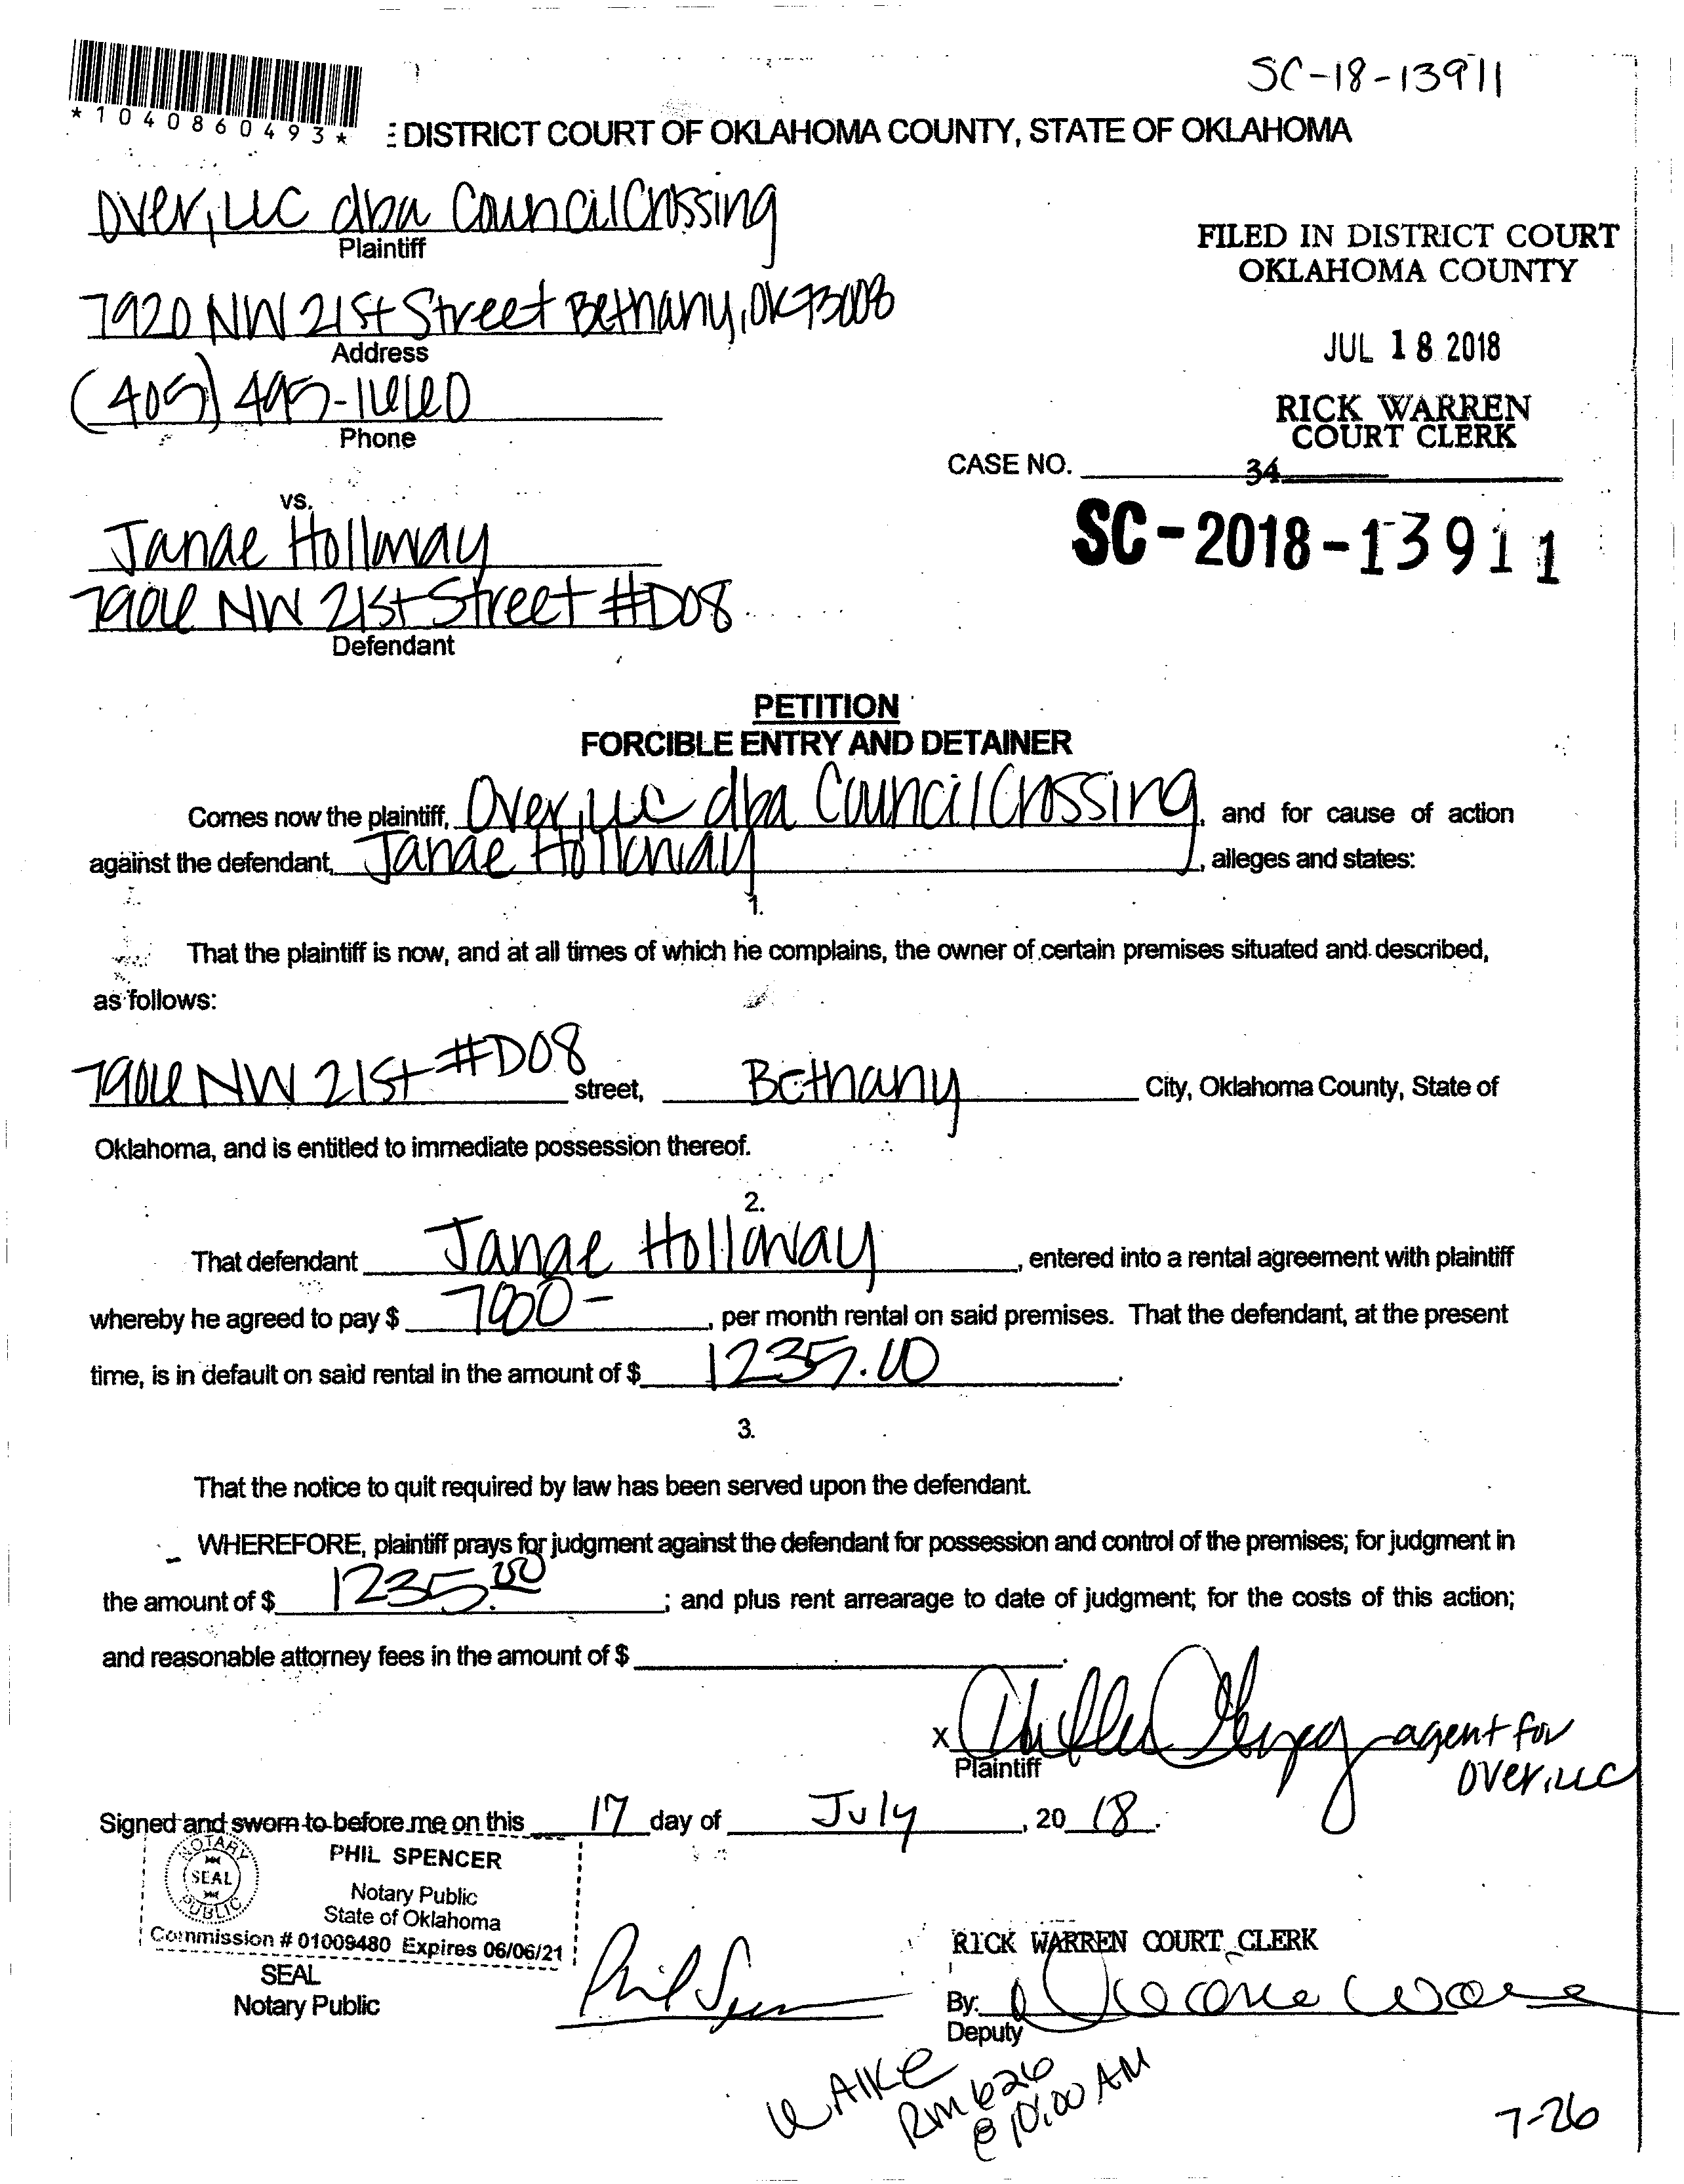 SC-18-13911
*1040860493*
E DISTRICT COURT OF OKLAHOMA COUNTY, STATE OF OKLAHOMA
Over, LLC dba Council Crossing
Plaintiff
FILED IN DISTRICT COURT
OKLAHOMA COUNTY
7920 NW 21st Street Bethany, OK 73008
Address
JUL 18 2018
(405) 495-1660
Phone
RICK WARREN
COURT CLERK
CASE NO.
34
vs.
SC-2018-13911
Janae Hollaway
7906 NW 21st Street #D08
Defendant
PETITION
FORCIBLE ENTRY AND DETAINER
Comes now the plaintiff, Over, LLC dba Council Crossing, and for cause of action
against the defendant, Janae Hollaway, alleges and states:
1.
That the plaintiff is now, and at all times of which he complains, the owner of certain premises situated and described,
as follows:
7906 NW 21st #D08 street, Bethany City, Oklahoma County, State of
Oklahoma, and is entitled to immediate possession thereof.
2.
That defendant Janae Hollaway, entered into a rental agreement with plaintiff
whereby he agreed to pay $ , per month rental on said premises. That the defendant, at the present
time, is in default on said rental in the amount of $ 1235.00.
3.
That the notice to quit required by law has been served upon the defendant.
WHEREFORE, plaintiff prays for judgment against the defendant for possession and control of the premises; for judgment in
the amount of $ 1235.00; and plus rent arrearage to date of judgment; for the costs of this action;
and reasonable attorney fees in the amount of $
x agent for
Plaintiff Over, LLC
Signed and sworn to before me on this 17 day of July, 2018.
NOTARY PUBLIC
SEAL
PHIL SPENCER
Notary Public
State of Oklahoma
Commission # 01009480 Expires 06/06/21
SEAL
Notary Public
Phil Spencer
RICK WARREN COURT CLERK
By:
Deputy
Rm 626
@ 10:00 AM
7-26